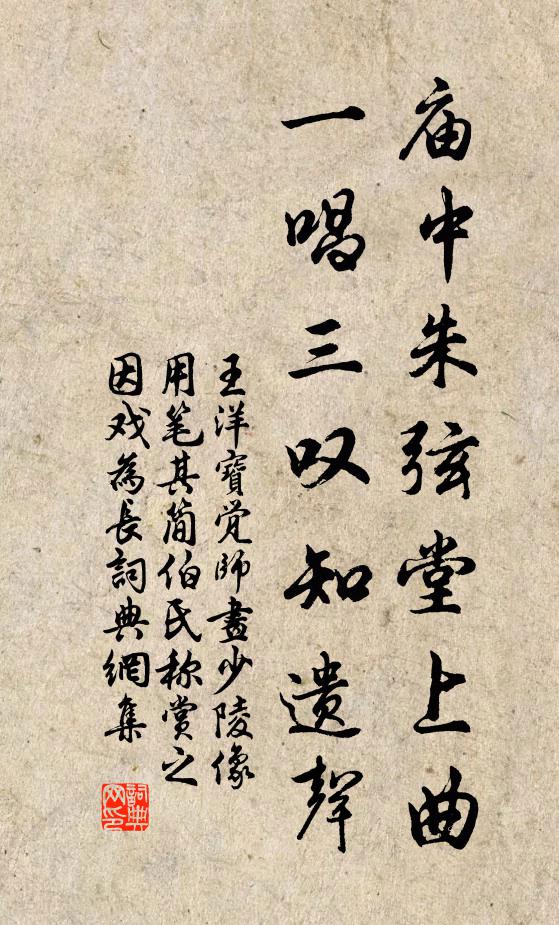 庙中朱弦堂上曲
一唱三叹知遗聲
王洋寶覚師畫少陵像
用笔其简伯氏称赏之
因戏為長詞典網集
詞典网印